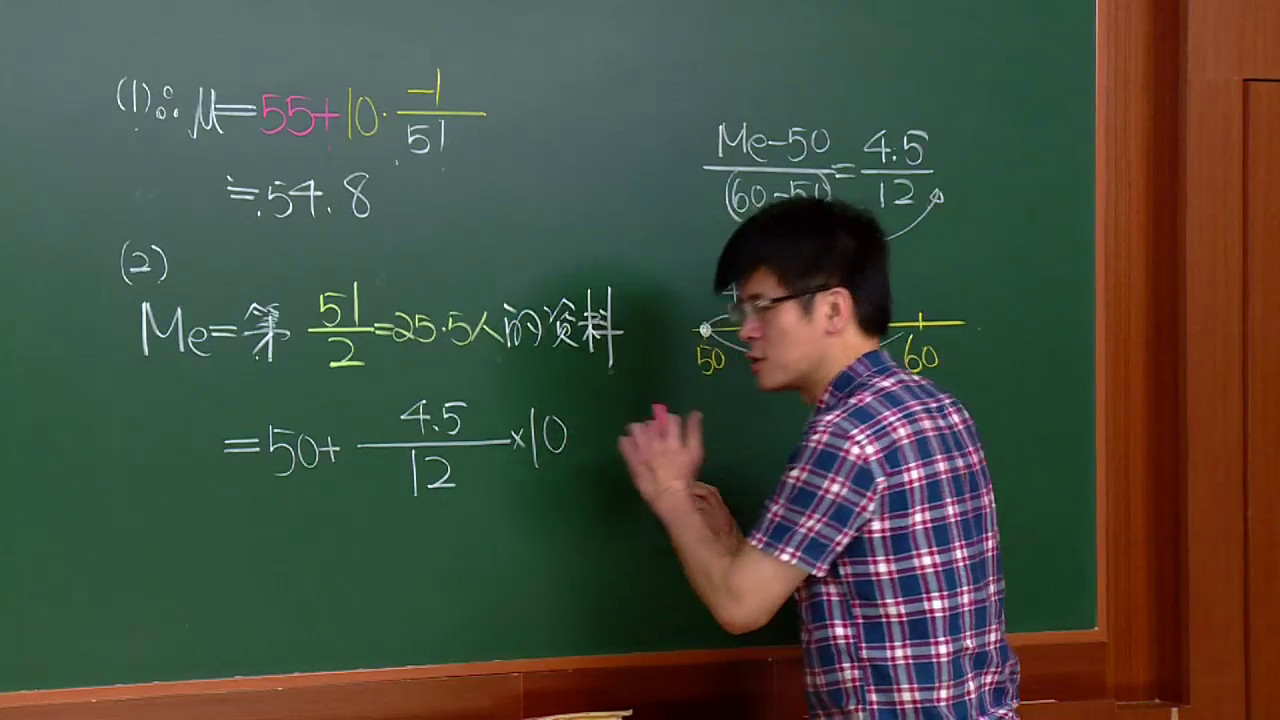 (1)∴ μ=55+10·-1/51
≒54.8
(2)
Me=第 51/2=25.5人的资料
=50+4.5/12×10
Me-50/(60-50)=4.5/12
50 60